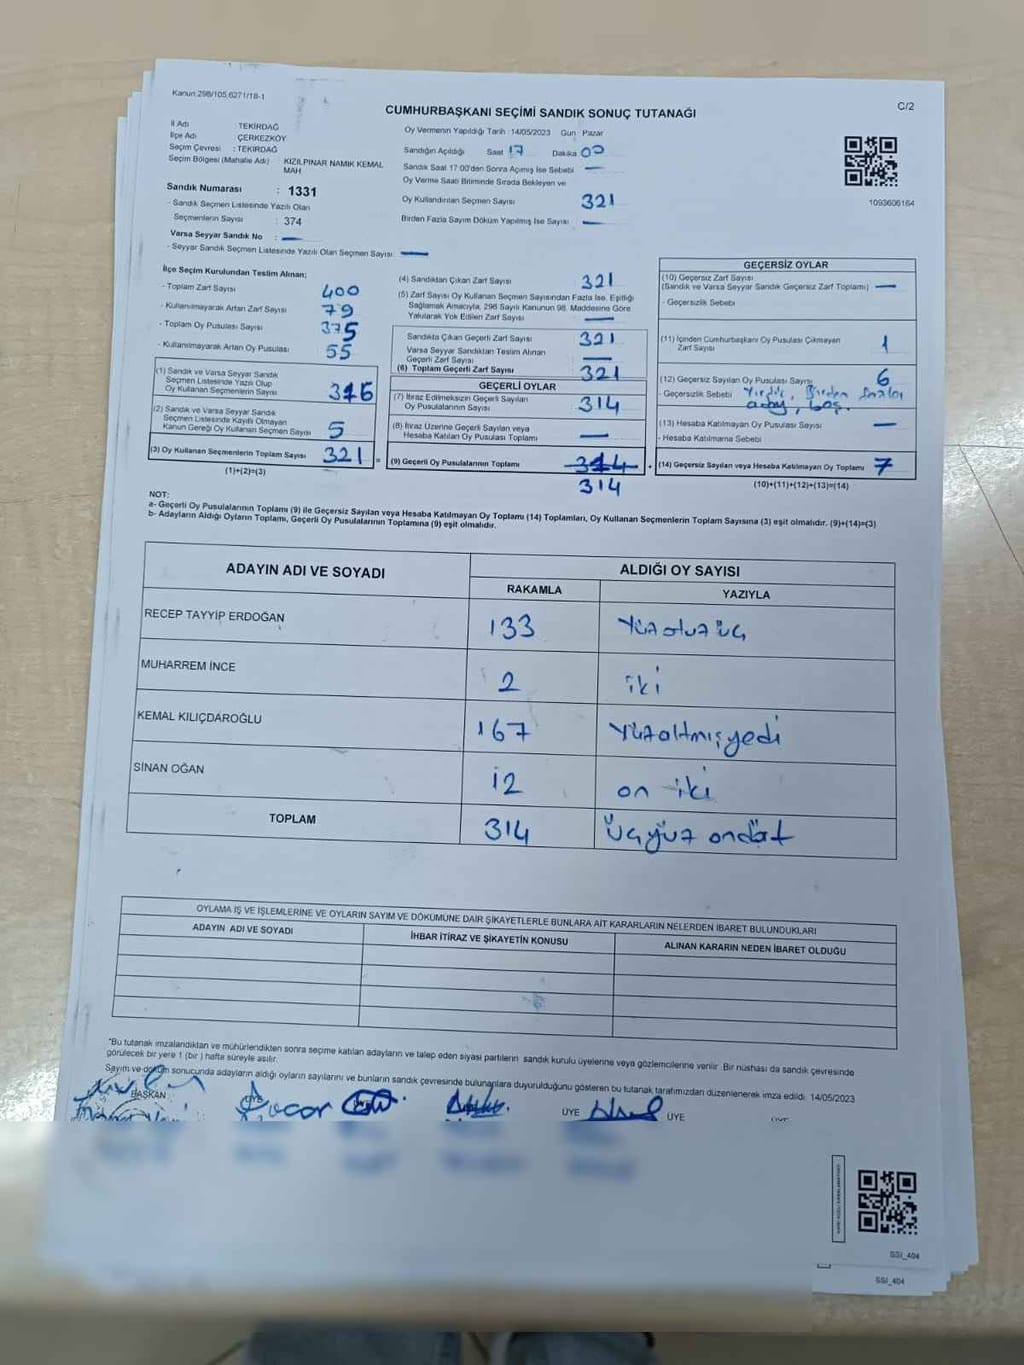 Kanun:298/105,6271/18-1
C/2
CUMHURBAŞKANI SEÇİMİ SANDIK SONUÇ TUTANAĞI
İl Adı TEKİRDAĞ
İlçe Adı ÇERKEZKÖY
Seçim Çevresi : TEKİRDAĞ
Seçim Bölgesi (Mahalle Adı) KIZILPINAR NAMIK KEMAL
MAH
Sandık Numarası : 1331
- Sandık Seçmen Listesinde Yazılı Olan
Seçmenlerin Sayısı : 374
Varsa Seyyar Sandık No : —
- Seyyar Sandık Seçmen Listesinde Yazılı Olan Seçmen Sayısı: —
Oy Vermenin Yapıldığı Tarih :14/05/2023 Gün : Pazar
Sandığın Açıldığı Saat 17 Dakika 00
Sandık Saat 17:00'den Sonra Açılmış İse Sebebi —
Oy Verme Saati Bitiminde Sırada Bekleyen ve
Oy Kullandırılan Seçmen Sayısı 321
Birden Fazla Sayım Döküm Yapılmış İse Sayısı —
1093606164
İlçe Seçim Kurulundan Teslim Alınan:
- Toplam Zarf Sayısı 400
- Kullanılmayarak Artan Zarf Sayısı 79
- Toplam Oy Pusulası Sayısı 375
- Kullanılmayarak Artan Oy Pusulası 55
(1) Sandık ve Varsa Seyyar Sandık
Seçmen Listesinde Yazılı Olup
Oy Kullanan Seçmenlerin Sayısı 316
(2) Sandık ve Varsa Seyyar Sandık
Seçmen Listesinde Kayıtlı Olmayan
Kanun Gereği Oy Kullanan Seçmen Sayısı 5
(3) Oy Kullanan Seçmenlerin Toplam Sayısı 321 =
(1)+(2)=(3)
(4) Sandıktan Çıkan Zarf Sayısı 321
(5) Zarf Sayısı Oy Kullanan Seçmen Sayısından Fazla İse, Eşitliği
Sağlamak Amacıyla, 298 Sayılı Kanunun 98. Maddesine Göre
Yakılarak Yok Edilen Zarf Sayısı —
Sandıkta Çıkan Geçerli Zarf Sayısı 321
Varsa Seyyar Sandıktan Teslim Alınan
Geçerli Zarf Sayısı —
(6) Toplam Geçerli Zarf Sayısı 321
GEÇERLİ OYLAR
(7) İtiraz Edilmeksizin Geçerli Sayılan
Oy Pusulalarının Sayısı 314
(8) İtiraz Üzerine Geçerli Sayılan veya
Hesaba Katılan Oy Pusulası Toplamı —
(9) Geçerli Oy Pusulalarının Toplamı 314 +
314
GEÇERSİZ OYLAR
(10) Geçersiz Zarf Sayısı
(Sandık ve Varsa Seyyar Sandık Geçersiz Zarf Toplamı) —
- Geçersizlik Sebebi
(11) İçinden Cumhurbaşkanı Oy Pusulası Çıkmayan
Zarf Sayısı 1
(12) Geçersiz Sayılan Oy Pusulası Sayısı 6
- Geçersizlik Sebebi Yırtık, Birden fazla
aday, boş.
(13) Hesaba Katılmayan Oy Pusulası Sayısı —
- Hesaba Katılmama Sebebi
(14) Geçersiz Sayılan veya Hesaba Katılmayan Oy Toplamı 7
(10)+(11)+(12)+(13)=(14)
NOT:
a- Geçerli Oy Pusulalarının Toplamı (9) ile Geçersiz Sayılan veya Hesaba Katılmayan Oy Toplamı (14) Toplamları, Oy Kullanan Seçmenlerin Toplam Sayısına (3) eşit olmalıdır. (9)+(14)=(3)
b- Adayların Aldığı Oyların Toplamı, Geçerli Oy Pusulalarının Toplamına (9) eşit olmalıdır.
ADAYIN ADI VE SOYADI ALDIĞI OY SAYISI
RAKAMLA YAZIYLA
RECEP TAYYİP ERDOĞAN 133 Yüz otuz üç
MUHARREM İNCE 2 iki
KEMAL KILIÇDAROĞLU 167 Yüzaltmışyedi
SİNAN OĞAN 12 on iki
TOPLAM 314 Üçyüz ondört
OYLAMA İŞ VE İŞLEMLERİNE VE OYLARIN SAYIM VE DÖKÜMÜNE DAİR ŞİKAYETLERLE BUNLARA AİT KARARLARIN NELERDEN İBARET BULUNDUKLARI
ADAYIN ADI VE SOYADI İHBAR İTİRAZ VE ŞİKAYETİN KONUSU ALINAN KARARIN NEDEN İBARET OLDUĞU
*Bu tutanak imzalandıktan ve mühürlendikten sonra seçime katılan adayların ve talep eden siyasi partilerin sandık kurulu üyelerine veya gözlemcilerine verilir. Bir nüshası da sandık çevresinde
görülecek bir yere 1 (bir ) hafta süreyle asılır.
Sayım ve döküm sonucunda adayların aldığı oyların sayılarını ve bunların sandık çevresinde bulunanlara duyurulduğunu gösteren bu tutanak tarafımızdan düzenlenerek imza edildi. 14/05/2023
BAŞKAN ÜYE ÜYE ÜYE ÜYE
SSI_404
SSI_404